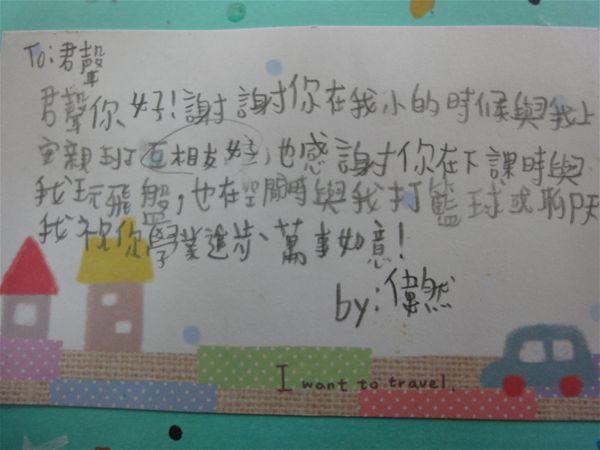 To:君聲
君聲你好!謝謝你在我小的時候與我上
安親班互相友好,也感謝你在下課時與
我玩飛盤,也在空閒時與我打籃球或聊天
我祝你學業進步、萬事如意!
by:偉然
I want to travel.